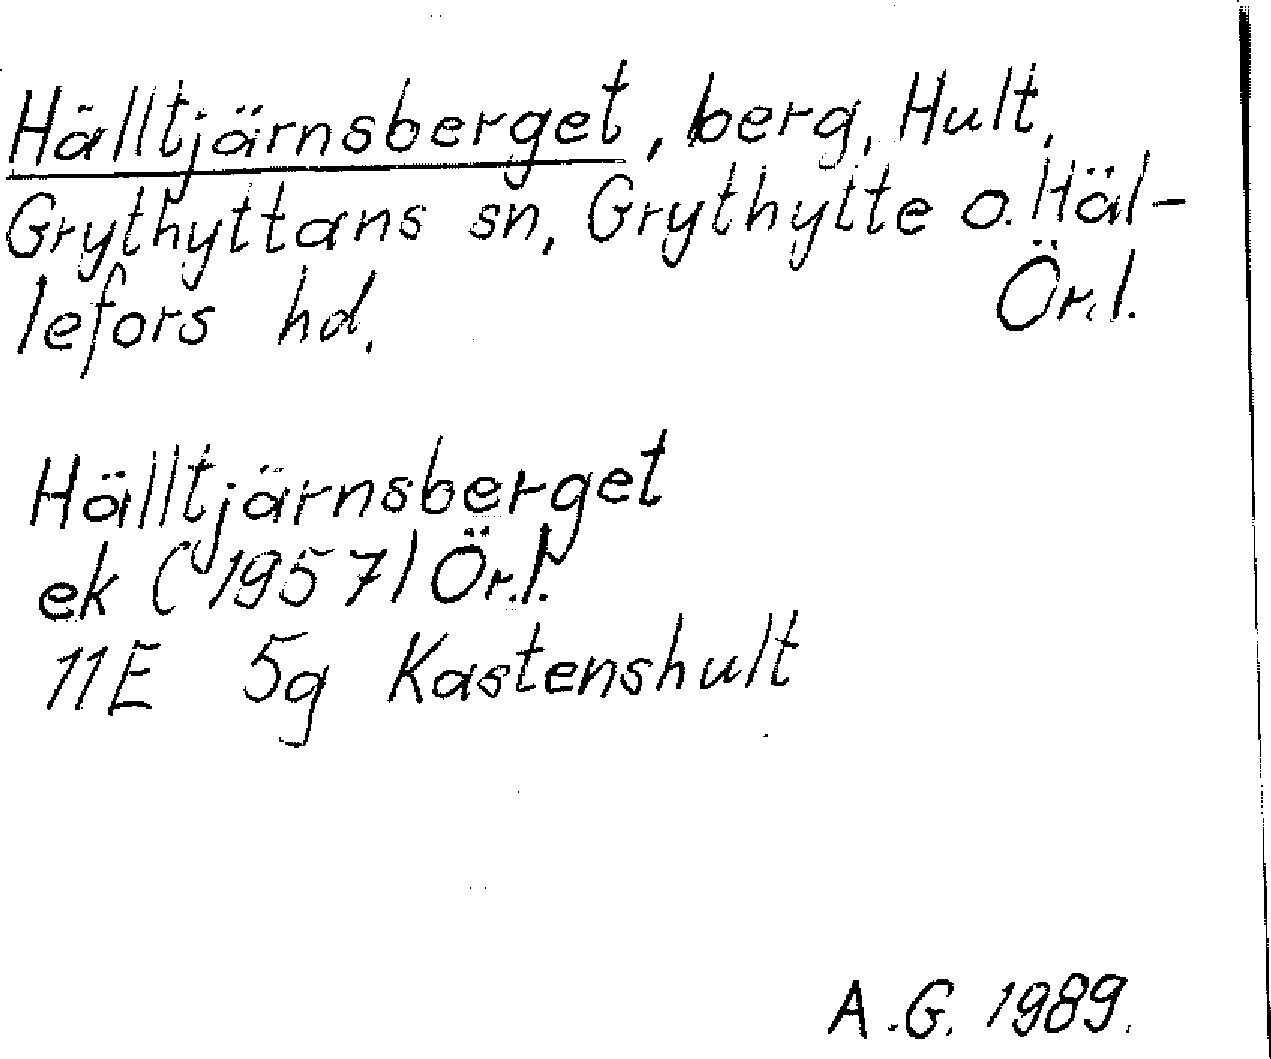 Hälltjärnsberget, berg, Hult,
Grythyttans sn, Grythytte o. Häl-
lefors hd. Ör.l.
Hälltjärnsberget
ek (1957) Ör.l.
11E 5g Kastenshult
A.G. 1989.